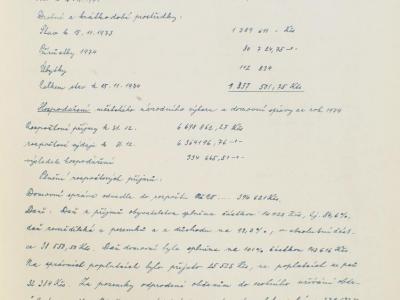 Drobné a krátkodobé prostředky:
Stav k 15. 11. 1973 1 789 611 - Kčs
Přírůstky 1974 80 724,75 -"-
Úbytky 112 834
Celkem stav k 15. 11. 1974 1 857 501,75 Kčs
Hospodaření městského národního výboru a domovní správy za rok 1974
Rozpočtové příjmy k 31. 12. 6 698 862,27 Kčs
rozpočtové výdaje k 31. 12. 6 364 196,76 -"-
výsledek hospodaření 334 665,51 -"-
Plnění rozpočtových příjmů:
Domovní správa odvedla do rozpočtu MěNV ... 396 621 Kčs.
Daň z příjmů obyvatelstva splněna částkou Kčs, tj. 84,6%,
daň zemědělská z pozemků a z důchodu na 93,8%, - absolutní část-
ce 38 559,50 Kčs. Daň domovní byla splněna na 101% částkou 143 616 Kčs
Na správních poplatcích bylo přijato 25 525 Kčs, za poplatcích ze psů
32 314 Kčs. Za pozemky odprodané občanům do osobního užívání